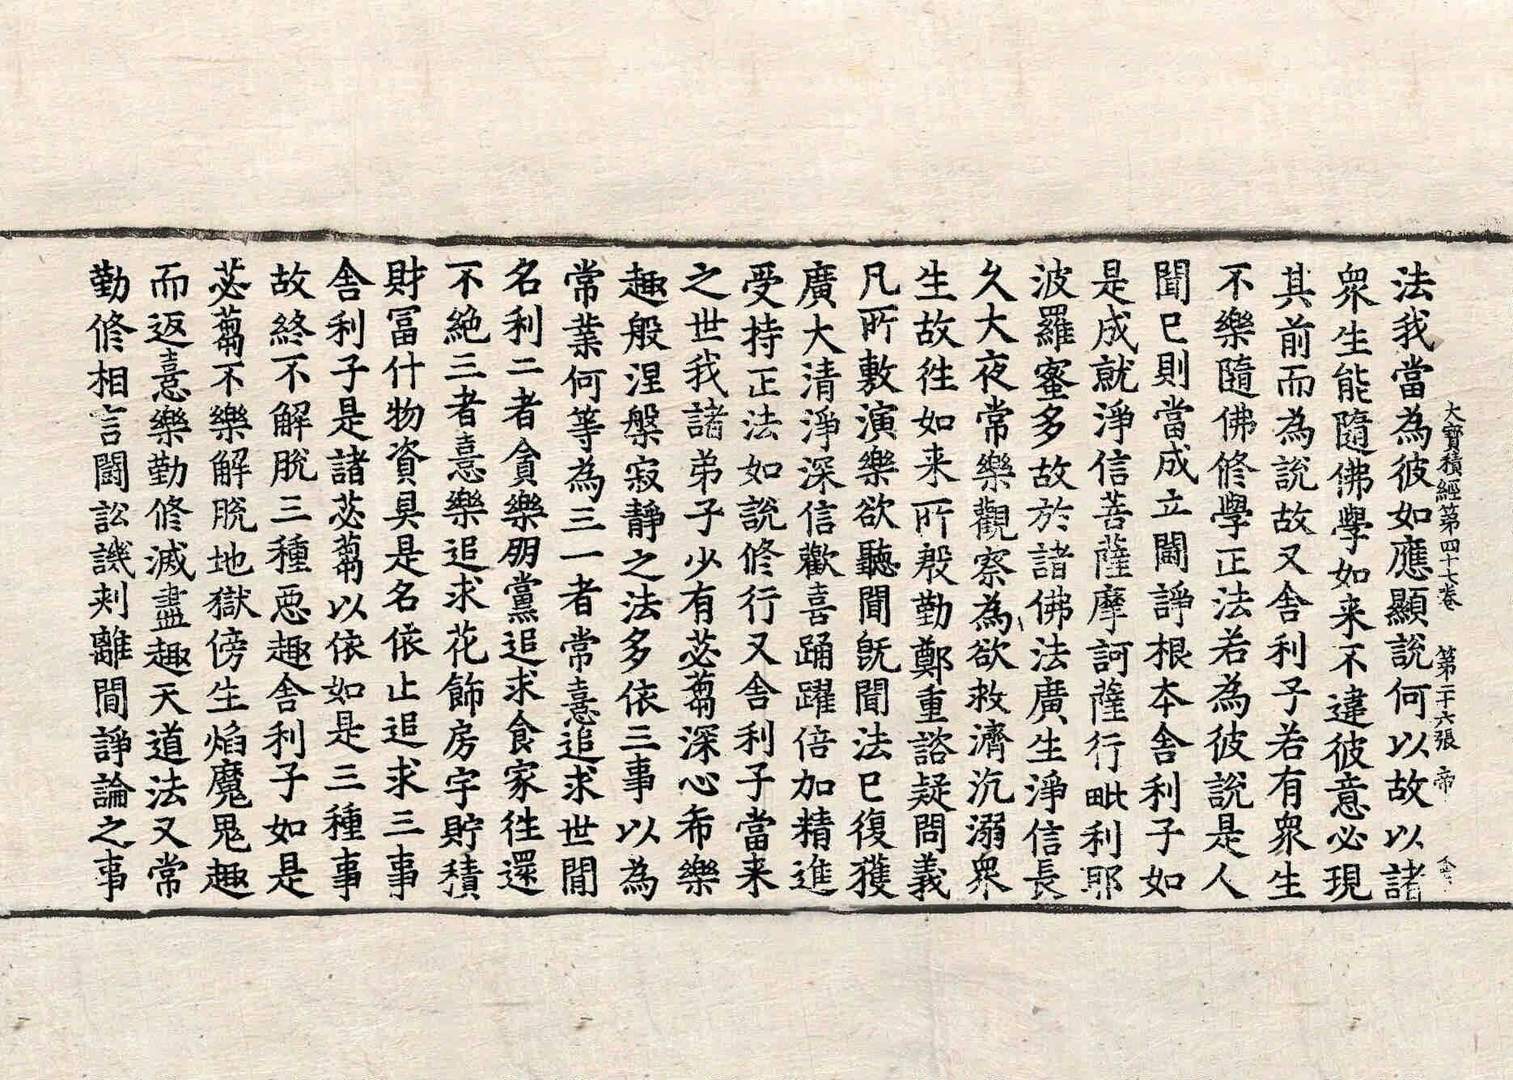 大寶積經第四十七卷　第二十六張　帝
法我當為彼如應顯說何以故以諸
衆生能隨佛學如来不違彼意必現
其前而為說故又舍利子若有衆生
不樂隨佛修學正法若為彼說是人
聞已則當成立鬪諍根本舍利子如
是成就淨信菩薩摩訶薩行毗利耶
波羅蜜多故於諸佛法廣生淨信長
久大夜常樂觀察為欲救濟沉溺衆
生故往如来所慇勤鄭重諮疑問義
凡所敷演樂欲聽聞旣聞法已復獲
廣大清淨深信歡喜踊躍倍加精進
受持正法如說修行又舍利子當来
之世我諸弟子少有苾蒭深心希樂
趣般涅槃寂靜之法多依三事以為
常業何等為三一者常憙追求世間
名利二者貪樂朋黨追求食家往還
不絕三者憙樂追求花飾房宇貯積
財冨什物資具是名依止追求三事
舍利子是諸苾蒭以依如是三種事
故終不解脫三種惡趣舍利子如是
苾蒭不樂解脫地獄傍生焰魔鬼趣
而返憙樂勤修滅盡趣天道法又常
勤修相言鬪訟譏刾離間諍論之事